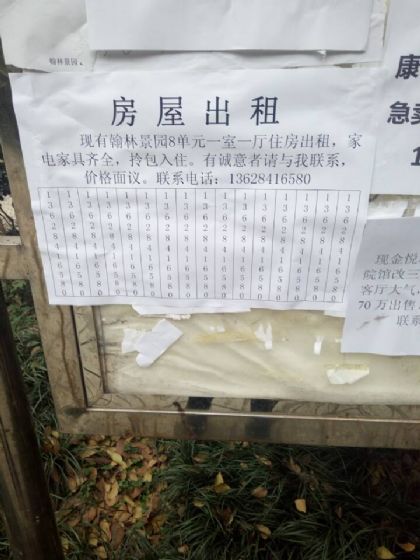 翰林景园
房屋出租
现有翰林景园8单元一室一厅住房出租，家
电家具齐全，拎包入住。有诚意者请与我联系，
价格面议。联系电话：13628416580
13628416580
13628416580
13628416580
13628416580
13628416580
13628416580
13628416580
13628416580
13628416580
13628416580
13628416580
13628416580
13628416580
13628416580
康
急卖
1
现金悦
院馆改三
客厅大气
70万出售
联系